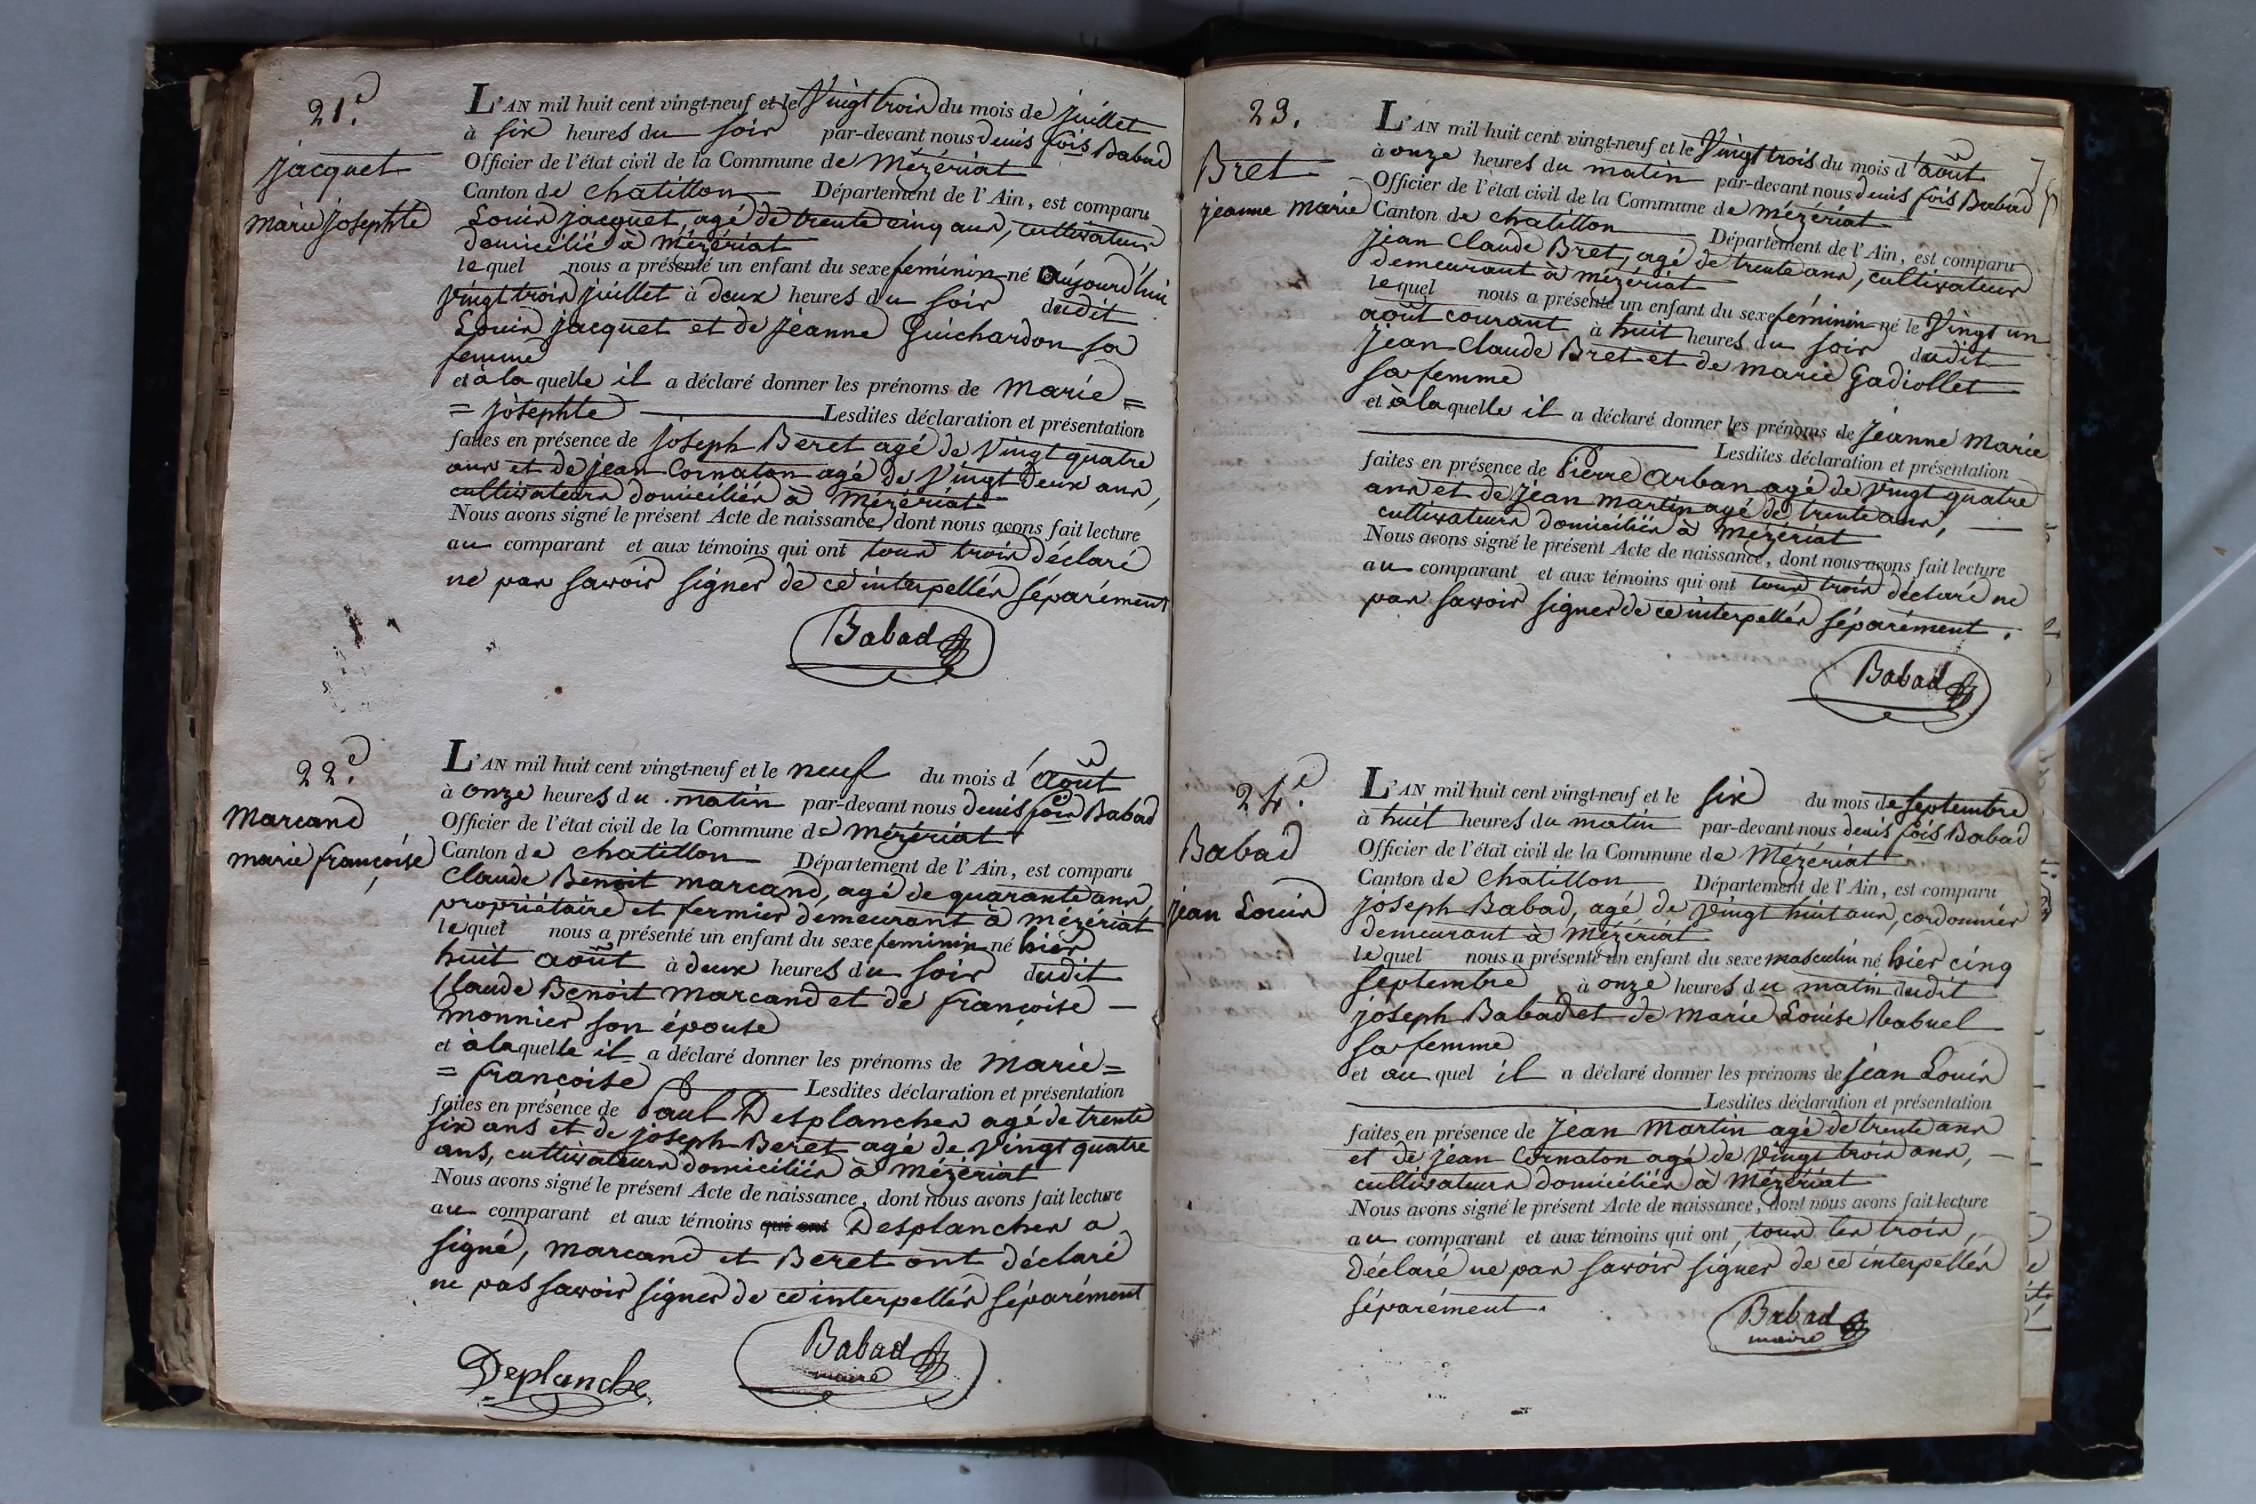 21e.
jacquet
marie josephte
L'AN mil huit cent vingt-neuf et le Vingt trois du mois de juillet
à six heures du soir par-devant nous denis fois Babad
Officier de l'état civil de la Commune de Mézériat
Canton de chatillon Département de l'Ain, est comparu
Louis jacquet, agé de trente cinq ans, cultivateur
domicilié à Mézériat
lequel nous a présenté un enfant du sexe féminin né aujourd'hui
vingt trois juillet à deux heures du soir dudit
Louis jacquet et de jeanne Guichardon sa
femme
et à laquelle il a déclaré donner les prénoms de marie=
= josephte Lesdites déclaration et présentation
faites en présence de joseph Beret agé de Vingt quatre
ans et de jean Cornaton agé de Vingt deux ans,
cultivateurs domiciliés à Mézériat
Nous avons signé le présent Acte de naissance, dont nous avons fait lecture
au comparant et aux témoins qui ont tous trois déclaré
ne pas savoir signer de ce interpellés séparément
Babad
22e.
marcand
marie françoise
L'AN mil huit cent vingt-neuf et le neuf du mois d'août
à onze heures du matin par-devant nous denis fois Babad
Officier de l'état civil de la Commune de Mézériat
Canton de chatillon Département de l'Ain, est comparu
Claude Benoit marcand, agé de quarante ans,
propriétaire et fermier demeurant à mézériat
lequel nous a présenté un enfant du sexe féminin né hier
huit août à deux heures du soir dudit
Claude Benoit marcand et de françoise
monnier son épouse
et à laquelle il a déclaré donner les prénoms de marie=
= françoise Lesdites déclaration et présentation
faites en présence de Paul Desplanches agé de trente
six ans et de joseph Beret agé de Vingt quatre
ans, cultivateurs domiciliés à mézériat
Nous avons signé le présent Acte de naissance, dont nous avons fait lecture
au comparant et aux témoins qui ont Desplanches a
signé, marcand et Beret ont déclaré
ne pas savoir signer de ce interpellés séparément
Deplanche
Babad
maire
23.
Bret
jeanne marie
L'AN mil huit cent vingt-neuf et le Vingt trois du mois d'août
à onze heures du matin par-devant nous denis fois Babad
Officier de l'état civil de la Commune de Mézériat
Canton de chatillon Département de l'Ain, est comparu
jean Claude Bret, agé de trente ans, cultivateur
demeurant à mézériat
lequel nous a présenté un enfant du sexe féminin né le Vingt un
août courant à huit heures du soir dudit
jean Claude Bret et de marie Gadiollet
sa femme
et à laquelle il a déclaré donner les prénoms de jeanne marie
Lesdites déclaration et présentation
faites en présence de Pierre Arban agé de vingt quatre
ans et de jean martin agé de trente ans,
cultivateurs domiciliés à mézériat
Nous avons signé le présent Acte de naissance, dont nous avons fait lecture
au comparant et aux témoins qui ont tous trois déclaré ne
pas savoir signer de ce interpellés séparément.
Babad
24e.
Babad
jean Louis
L'AN mil huit cent vingt-neuf et le six du mois de septembre
à huit heures du matin par-devant nous denis fois Babad
Officier de l'état civil de la Commune de Mézériat
Canton de chatillon Département de l'Ain, est comparu
joseph Babad, agé de vingt huit ans, cordonnier
demeurant à mézériat
lequel nous a présenté un enfant du sexe masculin né hier cinq
septembre à onze heures du matin dudit
joseph Babad et de marie Louise Vabuel
sa femme
et auquel il a déclaré donner les prénoms de jean Louis
Lesdites déclaration et présentation
faites en présence de jean martin agé de trente ans
et de jean Cornaton agé de vingt trois ans,
cultivateurs domiciliés à Mézériat
Nous avons signé le présent Acte de naissance, dont nous avons fait lecture
au comparant et aux témoins qui ont tous les trois
déclaré ne pas savoir signer de ce interpellés
séparément.
Babad
maire